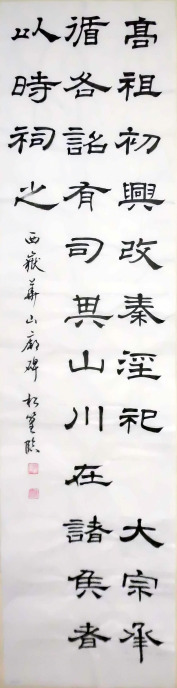 高祖初興改秦淫祀 大宗承
循各詔有司其山川在諸侯者
以時祠之
西嶽華山廟碑 松篁臨